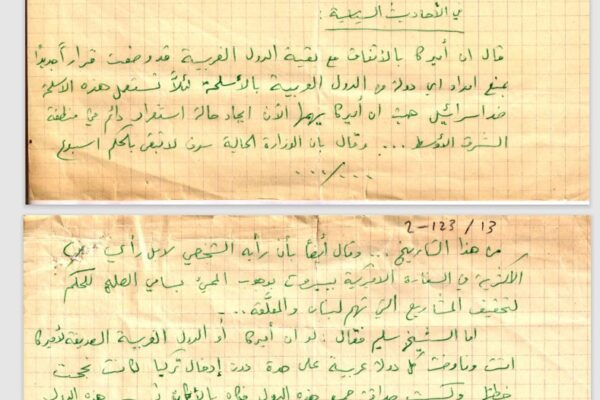 في الأحاديث السياسية :
قال ان أميركا بالاتفاق مع بقية الدول الغربية قد وضعت قراراً جديداً
بمنع امداد اي دولة من الدول العربية بالأسلحة لئلا تستعمل هذه الاسلحة
ضد اسرائيل حيث ان أميركا يهمها الآن ايجاد حالة استقرار دائم في منطقة
الشرق الأوسط ... وقال بان الوزارة الحالية سوف لا تبقى بالحكم اسبوع
.../...
2-123/13
من هذا التاريخ ... وقال أيضاً بأن رأيه الشخصي لا بل رأي
الأكثرية في السفارة الاميركية ببيروت بوجوب المجيء بسامي الصلح للحكم
لتحقيق المشاريع التي تهم لبنان والمعلّقة ...
اما الشيخ سليم فقال : لو ان أميركا أو الدول الغربية الصديقة لأميركا
اتت وفاوضت كل دولة عربية على حدة دون إدخال تركيا لكانت نجحت
هذه الدول